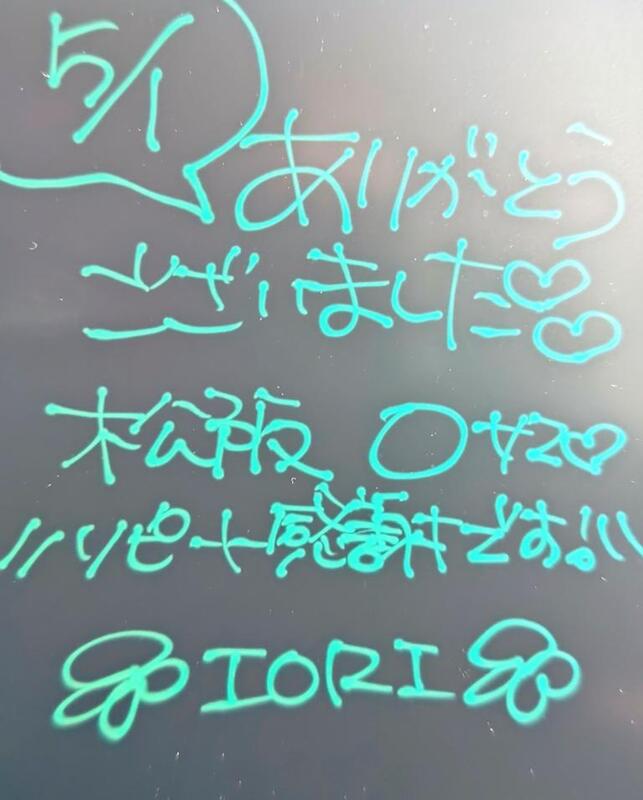 5/1
ありがとう
ございました♡♡
松阪 〇サマ♡
リピート感謝です!
IORI